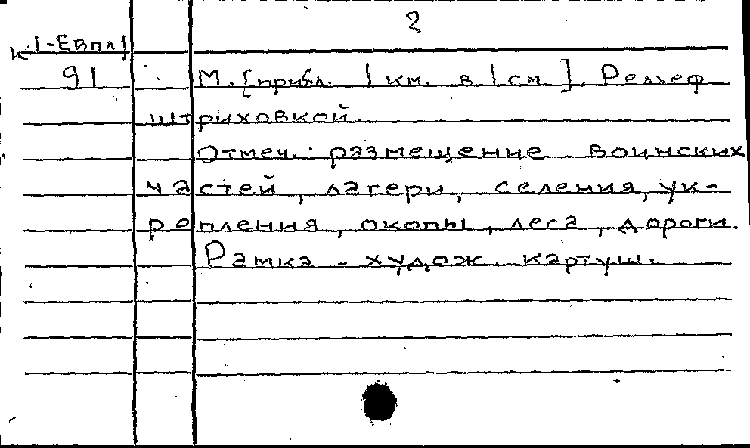 2
К.1-Евпл
91
М. [прибл. 1 км. в 1 см.]. Рельеф
штриховкой.
Отмеч.: размещение воинских
частей, лагери, селения, ук-
репления, окопы, леса, дороги.
Рамка - худож. картуш.